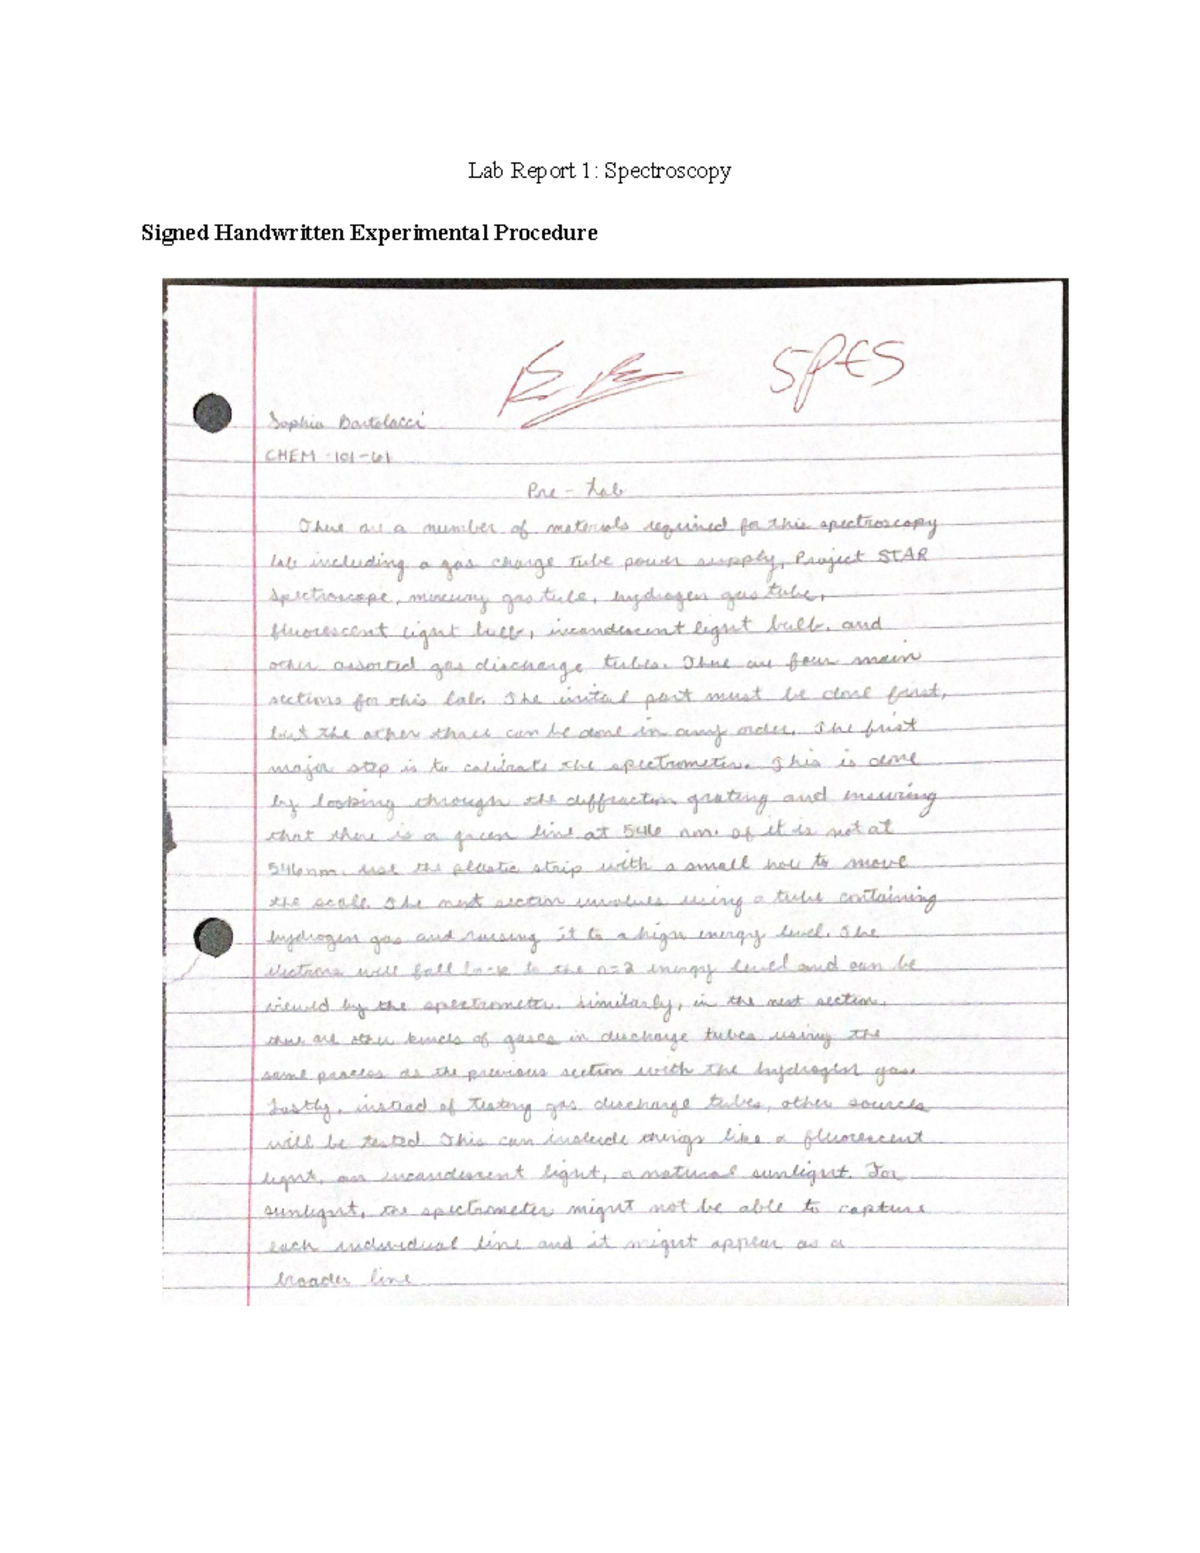 Lab Report 1: Spectroscopy
Signed Handwritten Experimental Procedure
SPES
Sophia Bartolacci
CHEM 101-61
Pre-Lab
There are a number of materials required for this spectroscopy
lab including a gas charge tube power supply, Project STAR
Spectroscope, mercury gas tube, hydrogen gas tube,
fluorescent light bulb, incandescent light bulb, and
other assorted gas discharge tubes. There are four main
sections for this lab. The initial part must be done first,
but the other three can be done in any order. The first
major step is to calibrate the spectrometer. This is done
by looking through the diffraction grating and ensuring
that there is a green line at 546 nm. If it is not at
546nm, use the plastic strip with a small hole to move
the scale. The next section involves using a tube containing
hydrogen gas and raising it to a high energy level. The
electrons will fall back to the n=2 energy level and can be
viewed by the spectrometer. Similarly, in the next section,
there are other kinds of gases in discharge tubes using the
same process as the previous section with the hydrogen gas.
Lastly, instead of testing gas discharge tubes, other sources
will be tested. This can include things like a fluorescent
light, an incandescent light, a natural sunlight. For
sunlight, the spectrometer might not be able to capture
each individual line and it might appear as a
broader line